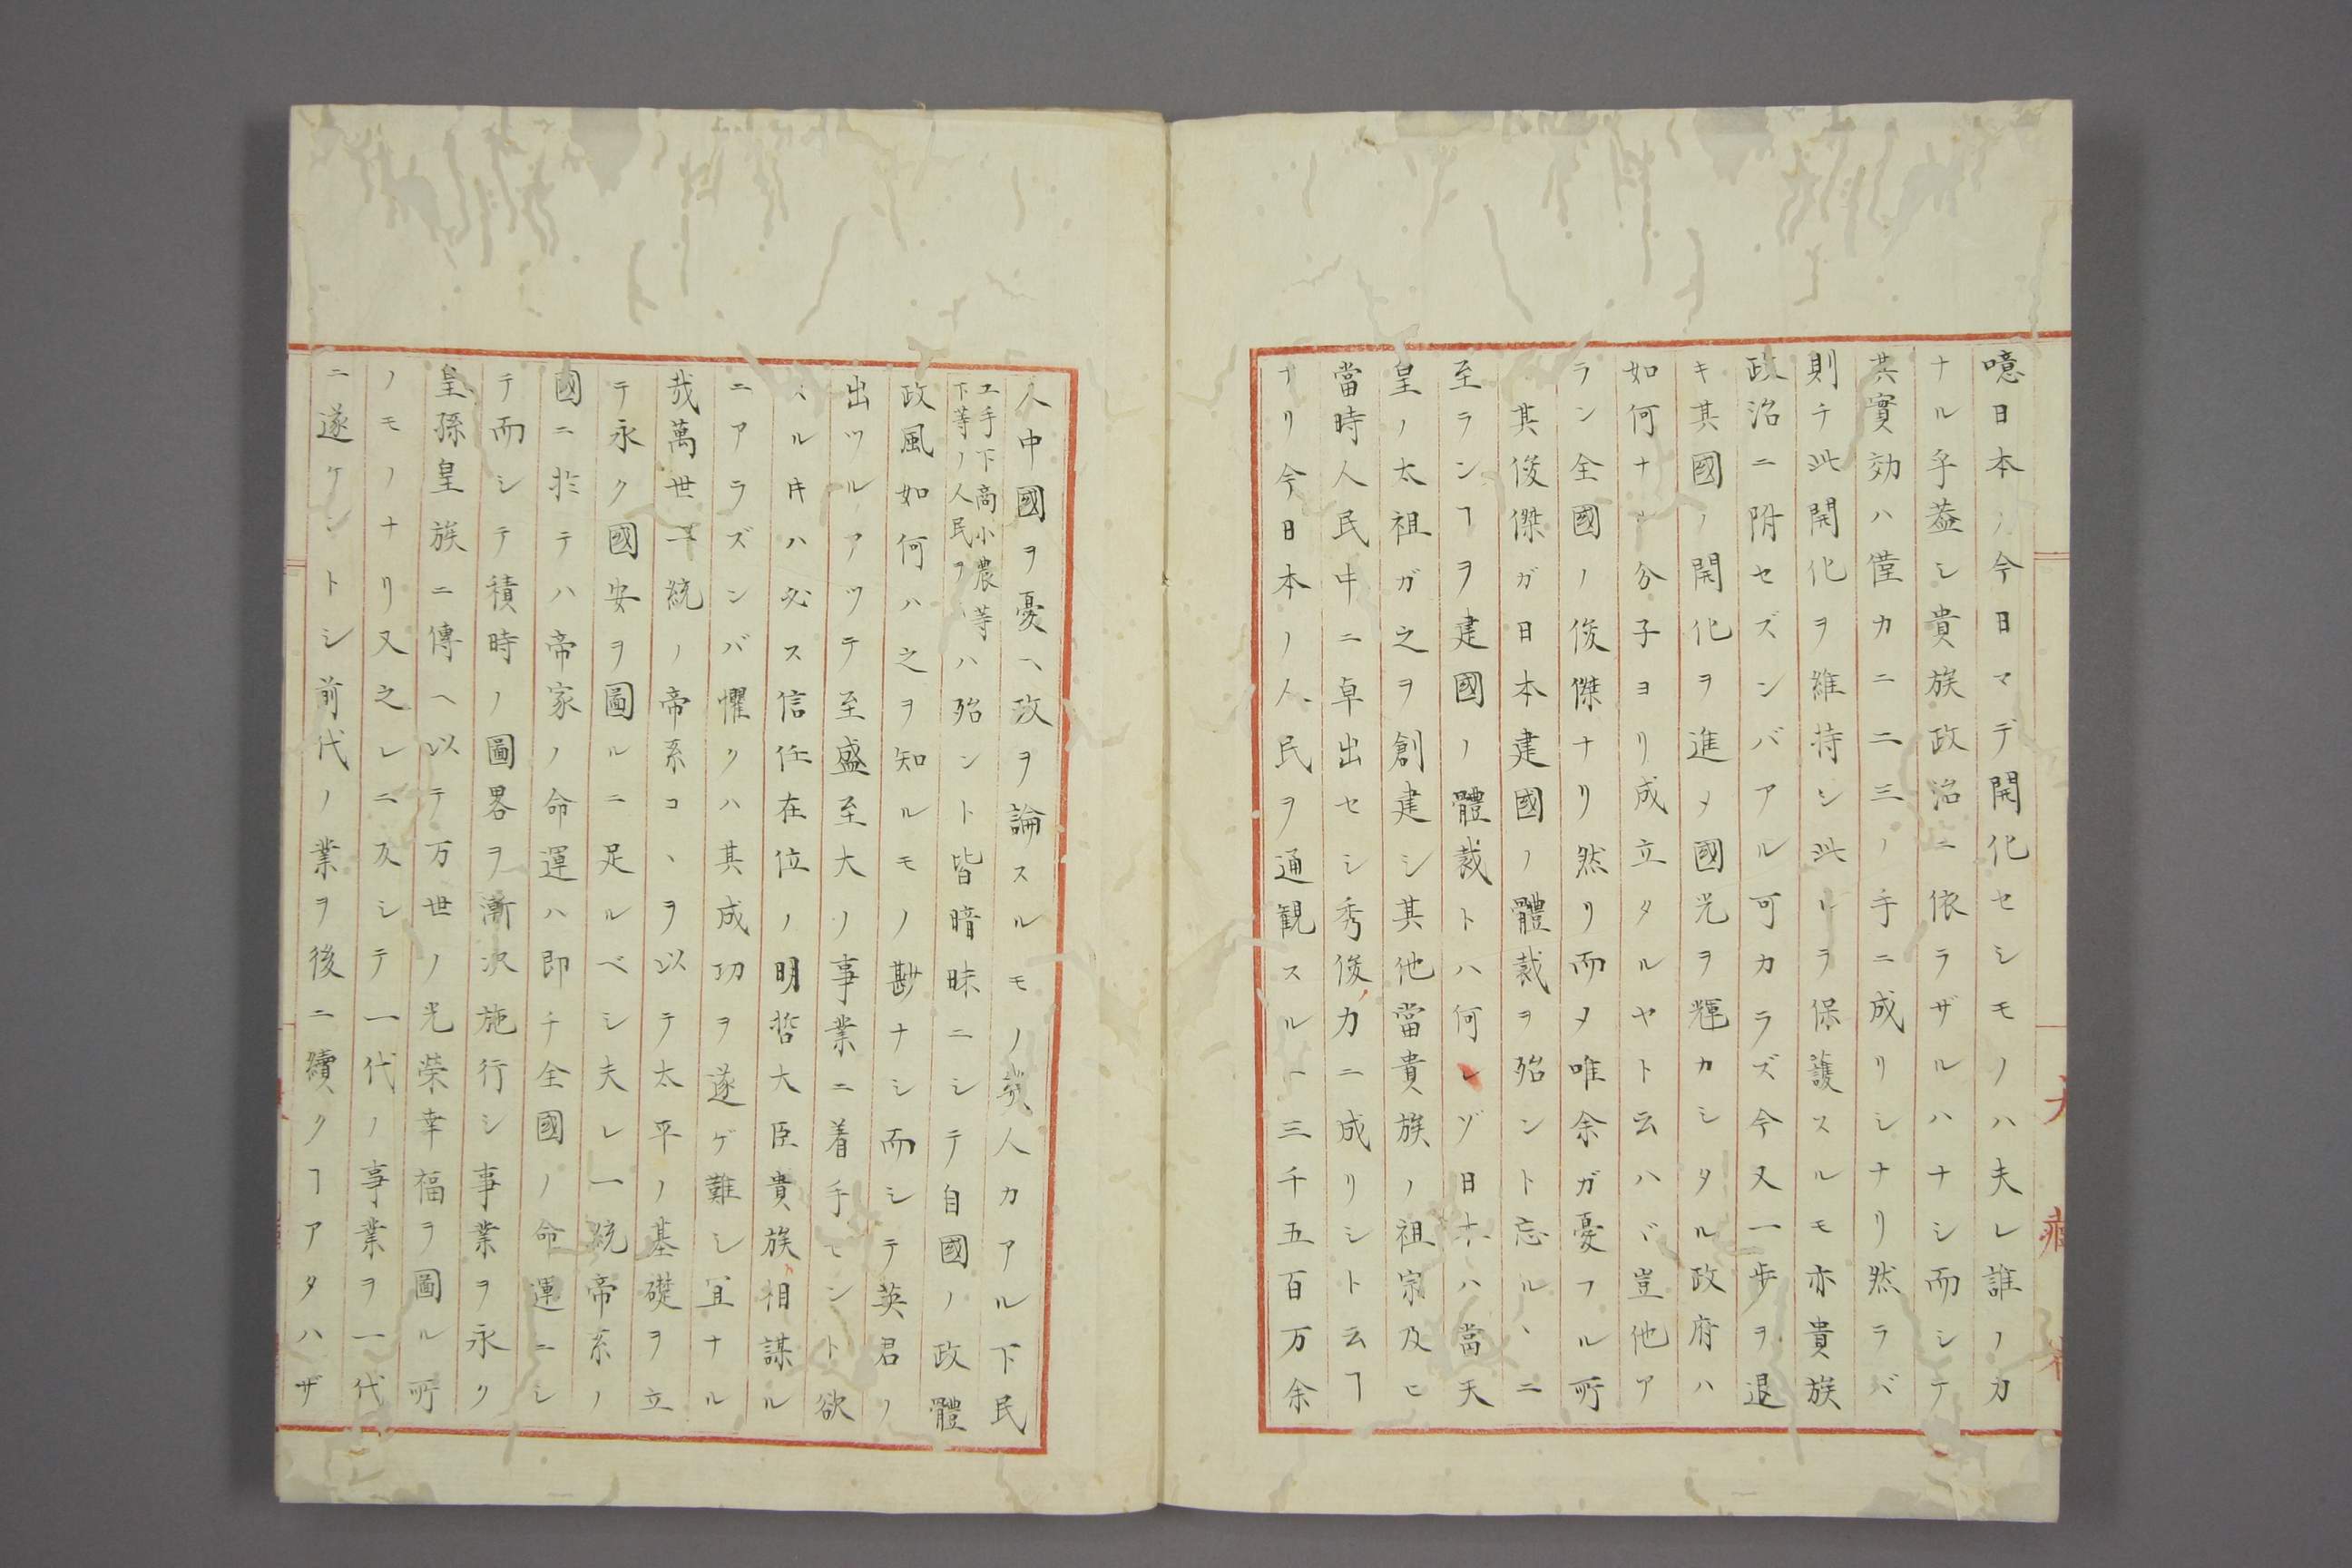 噫日本ノ今日マデ開化セシモノハ夫レ誰ノカ
ナル乎葢シ貴族政治ニ依ラザルハナシ而シテ
其實効ハ僅カニ二三ノ手ニ成リシナリ然ラバ
則チ此開化ヲ維持シ此レラ保護スルモ亦貴族
政治ニ附セズンバアル可カラズ今又一歩ヲ退
キ其國ノ開化ヲ進メ國光ヲ輝カシタル政府ハ
如何ナル分子ヨリ成立タルヤト云ハヾ豈他ア
ラン全國ノ俊傑ナリ然リ而メ唯余ガ憂フル所
其俊傑ガ日本建國ノ體裁ヲ殆ント忘ルヽニ
至ランヿヲ建國ノ體裁トハ何レゾ日本ハ當天
皇ノ太祖ガ之ヲ創建シ其他當貴族ノ祖宗及ヒ
當時人民中ニ卓出セシ秀俊ノ力ニ成リシト云ヿ
ナリ今日本ノ人民ヲ通観スルニ三千五百万余
人中國ヲ憂ヘ政ヲ論スルモノ幾人カアル下民
工手下商小農等
下等ノ人民ヲハ殆ント皆暗昧ニシテ自國ノ政體
政風如何ハ之ヲ知ルモノ尠ナシ而シテ英君ノ
出ツルアツテ至盛至大ノ事業ニ着手セント欲
スルキハ必ス信任在位ノ明哲大臣貴族ト相謀ル
ニアラズンバ懼クハ其成功ヲ遂ゲ難シ冝ナル
哉萬世一統ノ帝系コヽヲ以テ太平ノ基礎ヲ立
テ永ク國安ヲ圖ルニ足ルベシ夫レ一統帝系ノ
國ニ非テハ帝家ノ命運ハ即チ全國ノ命運ニシ
テ而シテ積時ノ圖畧ヲ漸次施行シ事業ヲ永ク
皇孫皇族ニ傳ヘ以テ万世ノ光榮幸福ヲ圖ル所
ノモノナリ又之レニ仄シテ一代ノ事業ヲ一代
ニ遂ケントシ前代ノ業ヲ後ニ續クヿアタハザ